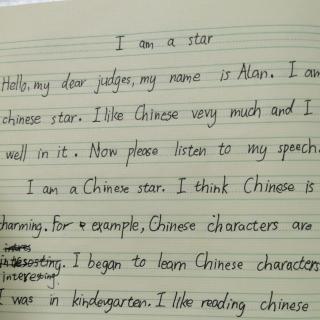 I am a star
Hello, my dear judges, my name is Alan. I am
chinese star. I like Chinese very much and I
well in it. Now please listen to my speech.
I am a Chinese star. I think Chinese is
harming. For example, Chinese characters are
interesting. I began to learn Chinese characters
I was in kindergarten. I like reading chinese